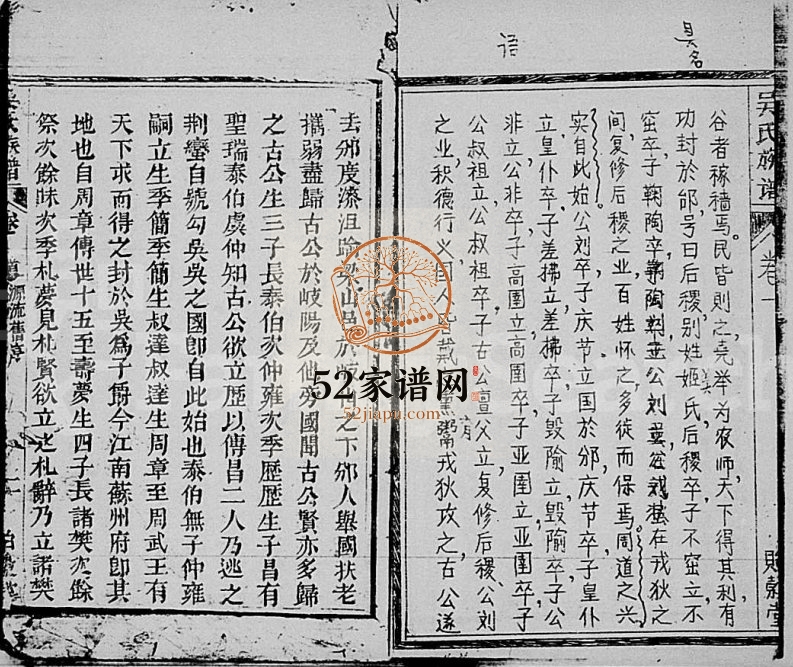 吴名
语
吴氏族谱 卷一
谷者稼穡焉民皆则之尧举为农师天下得其利有
功封於邰号曰后稷别姓姬氏后稷卒子不窋立不
窋卒子鞠陶立鞠陶卒公刘立公刘虽在戎狄之
间复修后稷之业百姓怀之多徒而保焉周道之兴
实自此始公刘卒子庆节立国於邠庆节卒子皇仆
立皇仆卒子差拂立差拂卒子毁隃立毁隃卒子公
非立公非卒子高圉立高圉卒子亚圉立亚圉卒子
公叔祖立公叔祖卒子古公亶父立复修后稷公刘
之业积德行义国人皆戴 薰鬻戎狄攻之古公遂
去邠度漆沮踰梁山邑於岐 之下邠人舉國扶老
攜弱盡歸古公於岐陽及他旁國聞古公賢亦多歸
之古公生三子長泰伯次仲雍次季歷歷生子昌有
聖瑞泰伯虞仲知古公欲立歷以傳昌二人乃逃之
荆蠻自號勾吳吳之國卽自此始也泰伯無子仲雍
嗣立生季簡季簡生叔達叔達生周章至周武王有
天下求而得之封於吳爲子爵今江南蘇州府卽其
地也自周章傳世十五至壽夢生四子長諸樊次餘
祭次餘昧次季札夢見札賢欲立之札辭乃立諸樊
吳氏族譜 卷 源流舊序
52家谱网
52jiapu.com